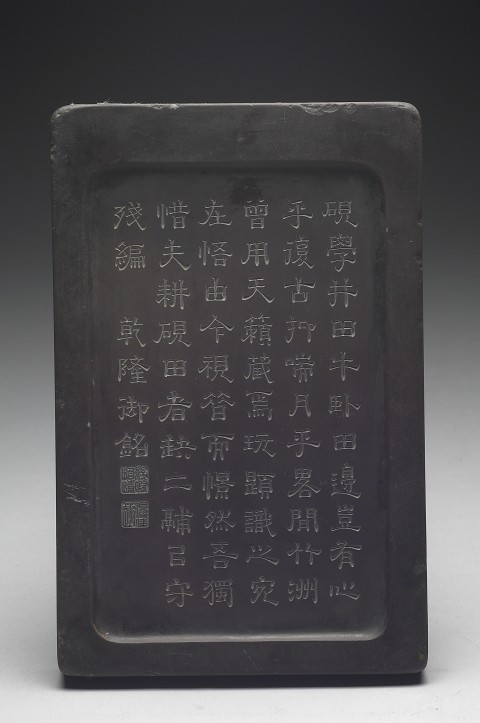 硯學井田牛卧田邊豈有心
乎復古抑喘月乎畧聞竹洲
曾用天籟藏焉玩題識之宛
在悟由今視昔而憬然吾獨
惜夫耕硯田者缺二餔㠯守
殘編 乾隆御銘